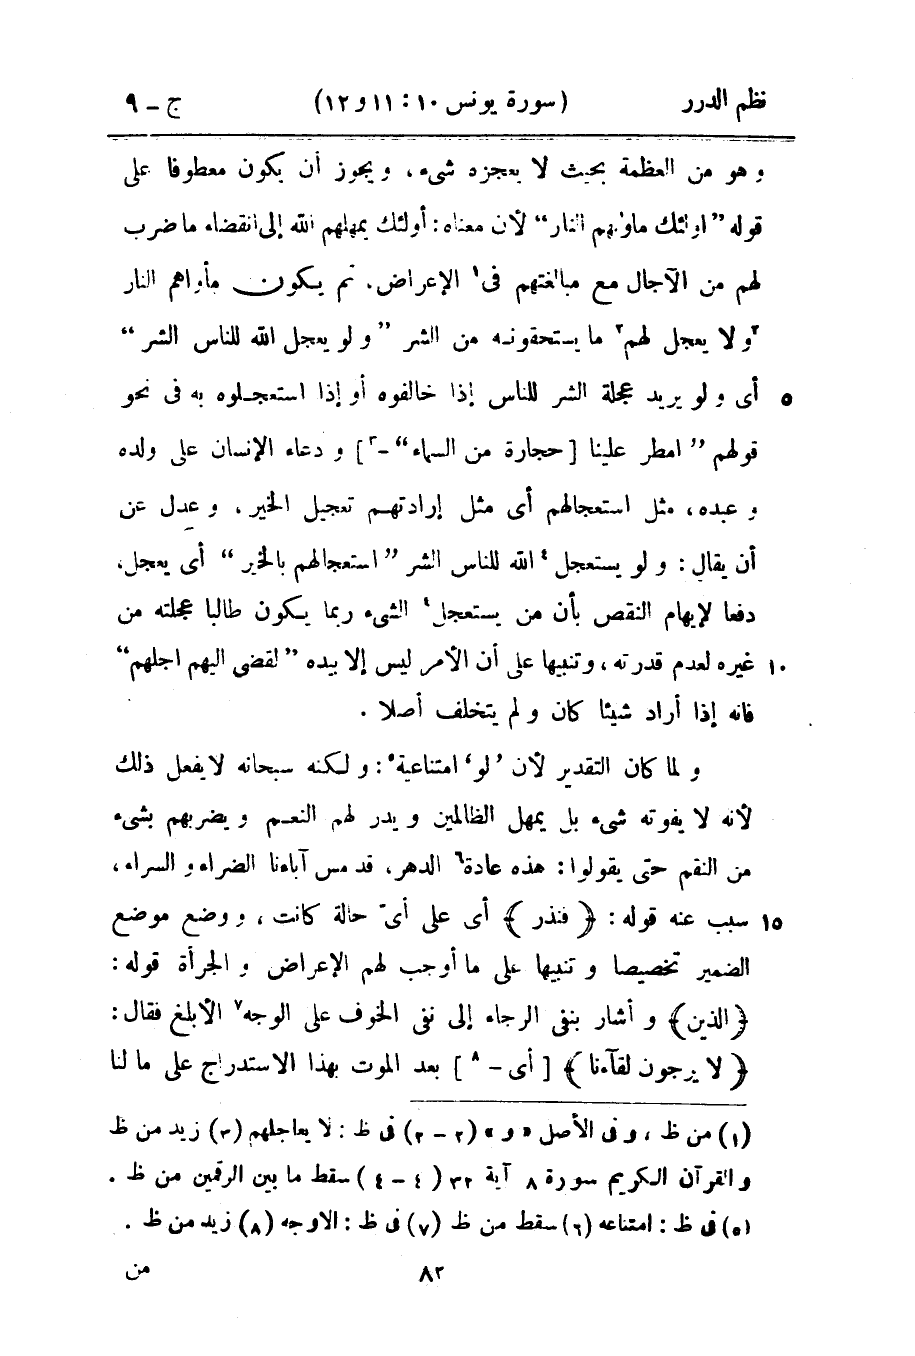 نظم الدرر (سورة يونس ١٠ : ١١ و ١٢) ج ـ ٩
و هو من العظمة بحيث لا يعجزه شىء، و يجوز أن يكون معطوفا على
قوله ”اولٰئك ماوٰىهم النار“ لأن معناه: أولئك يمهلهم الله إلى انقضاء ما ضرب
لهم من الآجال مع مبالغتهم فى١ الإعراض. ثم يكون مأواهم النار
٢و لا يعجل لهم٢ ما يستحقونه من الشر ”و لو يعجل الله للناس الشر“
٥ أى و لو يريد عجلة الشر للناس إذا خالفوه أو إذا استعجلوه به فى نحو
قولهم ”امطر علينا [حجارة من السماء“ـ٣] و دعاء الإنسان على ولده
و عبده، مثل استعجالهم أى مثل إرادتهم تعجيل الخير، و عدل عن
أن يقال: و لو يستعجل٤ الله للناس الشر ”استعجالهم بالخير“ أى يعجل،
دفعا لإيهام النقص بأن من يستعجل٤ الشىء ربما يكون طالبا عجلته من
١٠ غيره لعدم قدرته، و تنبيها على أن الأمر ليس إلا بيده ”لقضى اليهم اجلهم“
فانه إذا أراد شيئا كان و لم يتخلف أصلا .
و لما كان التقدير لأن ’لو‘ امتناعية٥: و لكنه سبحانه لا يفعل ذلك
لأنه لا يفوته شىء بل يمهل الظالمين و يدر لهم النعم و يضربهم بشىء
من النقم حتى يقولوا: هذه عادة٦ الدهر، قد مس آباءنا الضراء و السراء،
١٥ سبب عنه قوله: ﴿فنذر﴾ أى على أىّ حالة كانت، و وضع موضع
الضمير تخصيصا و تنبيها على ما أوجب لهم الإعراض و الجرأة قوله:
﴿الذين﴾ و أشار بنفى الرجاء إلى نفى الخوف على الوجه٧ الأبلغ فقال:
﴿لا يرجون لقآءنا﴾ [أى - ٨] بعد الموت بهذا الاستدراج على ما لنا
(١) من ظ، و فى الأصل « و » (٢ - ٢) فى ظ: لا يعاجلهم (٣) زيد من ظ
و القرآن الكريم سورة ٨ آية ٣٢ (٤ - ٤) سقط ما بين الرقمين من ظ .
(٥) فى ظ: امتناعه (٦) سقط من ظ (٧) فى ظ: الاوجه (٨) زيد من ظ .
٨٢ من